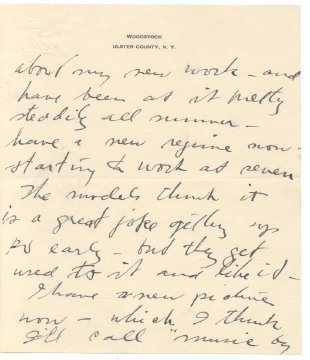 WOODSTOCK
ULSTER COUNTY, N. Y.
about my new work – and
have been at it pretty
steadily all summer –
have a new regime now –
starting to work at seven
The models think it
is a great joke getting up
so early – but they get
used to it and like it –
I have a new picture
now – which I think
I'll call "music by